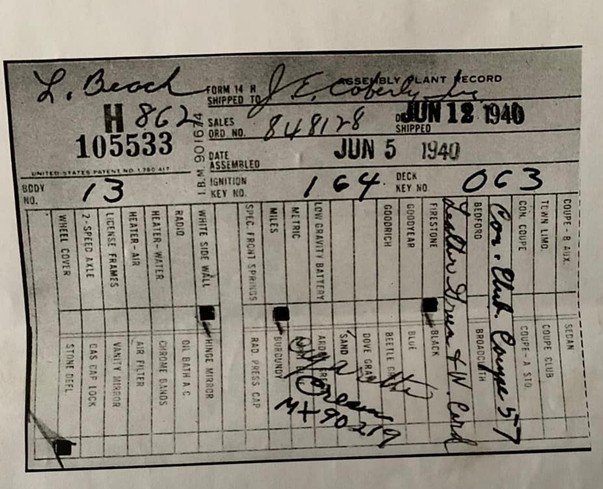 L. Beach
ASSEMBLY PLANT RECORD
FORM 14 H
SHIPPED TO J E Coberly Inc
H 862
105533
SALES
ORD. NO. 848128
SHIPPED JUN 12 1940
DATE
ASSEMBLED JUN 5 1940
UNITED STATES PATENT NO. 1,780,417
I.B.M. 901674
BODY
NO. 13
IGNITION
KEY NO. 164
DECK
KEY NO. 063
WHEEL COVER
2-SPEED AXLE
LICENSE FRAMES
HEATER-AIR
HEATER-WATER
RADIO
WHITE SIDE WALL
SPEC. FRONT SPRINGS
MILES
METRIC
LOW GRAVITY BATTERY
GOODRICH
GOODYEAR
FIRESTONE
BEDFORD
CON. COUPE
TOWN LIMO.
COUPE - B AUX.
STONE DEFL.
GAS CAP LOCK
VANITY MIRROR
AIR FILTER
CHROME BANDS
OIL BATH A.C.
HINGE MIRROR
RAD. PRESS. CAP
BURGUNDY
SAND
DOVE GRAY
BEETLE
BLUE
BLACK
BROADCLOTH
COUPE - A STD.
COUPE CLUB
SEDAN
Con. Club Coupe 57
Leather Green & W Cord
Cream
MX 90219